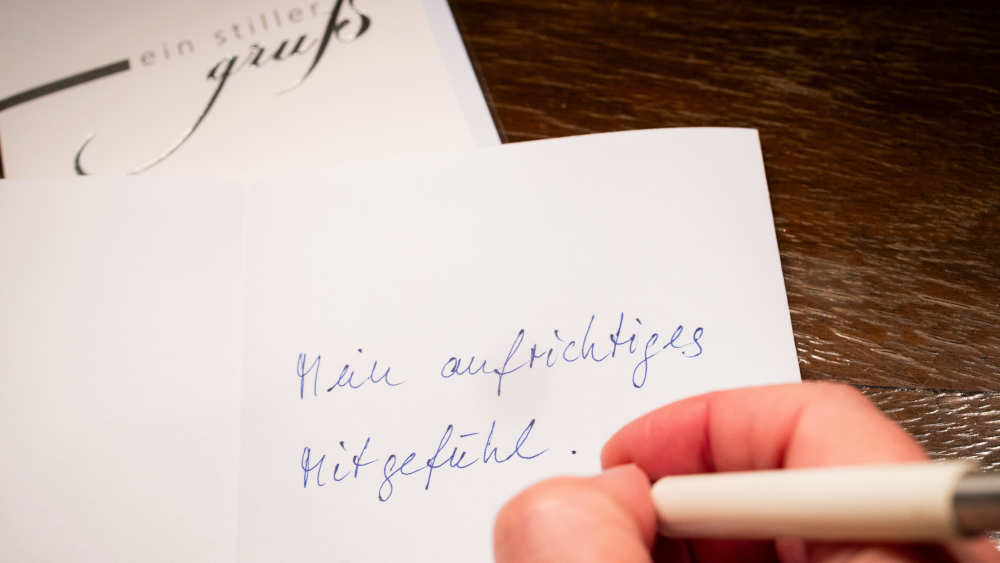 ein stiller
gruß
Mein aufrichtiges
Mitgefühl.